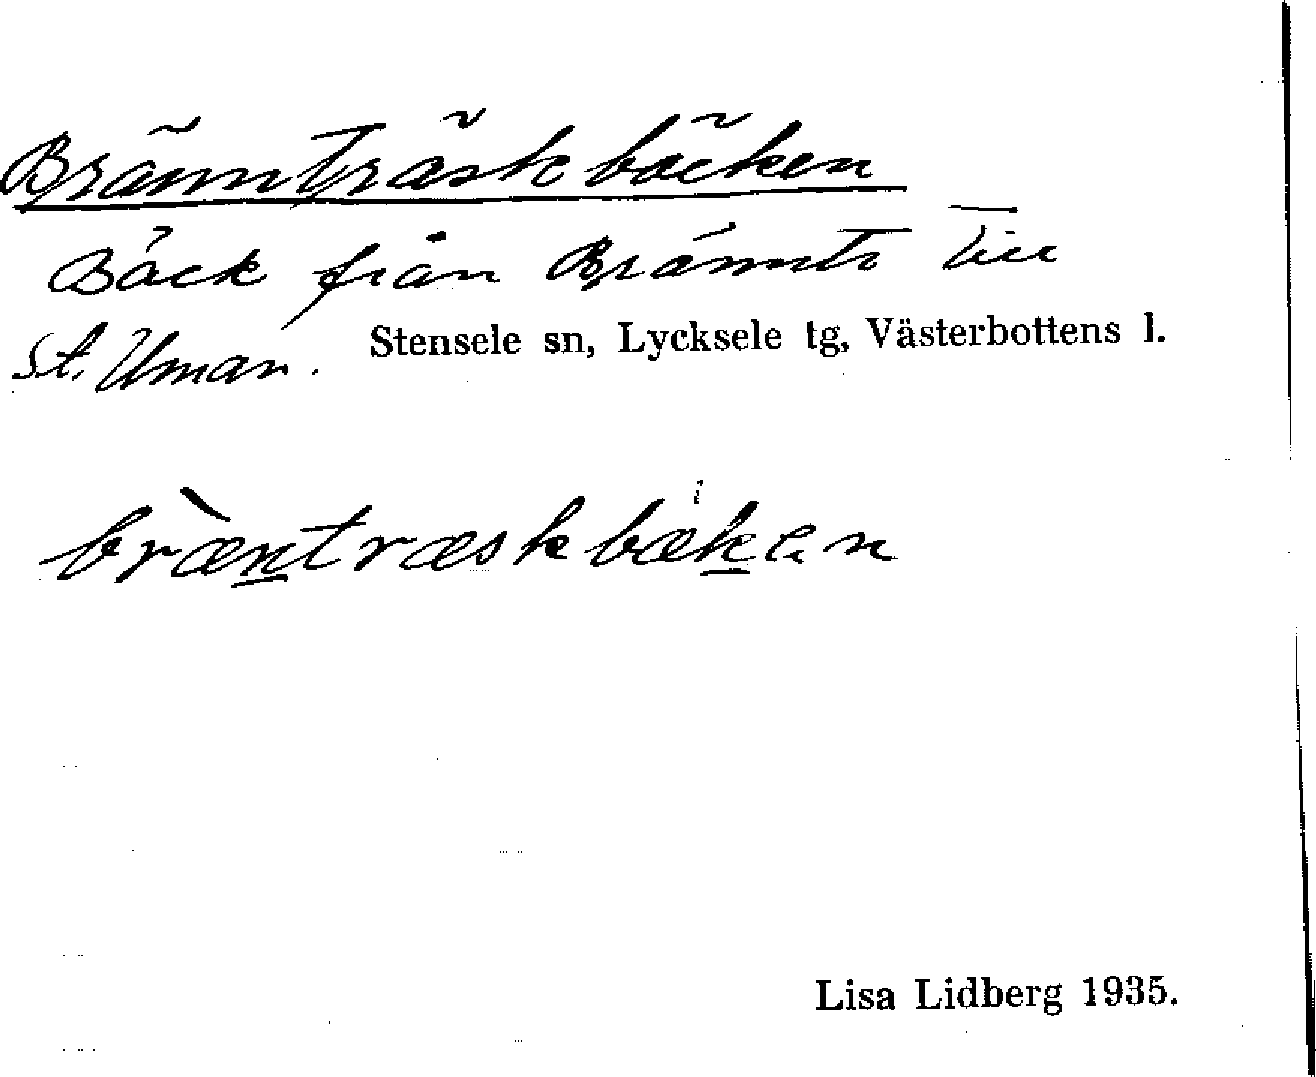 Brännträskbäcken
Bäck från Brännts till
St. Uman. Stensele sn, Lycksele tg, Västerbottens l.
bræ̀ntræskbæken
Lisa Lidberg 1935.